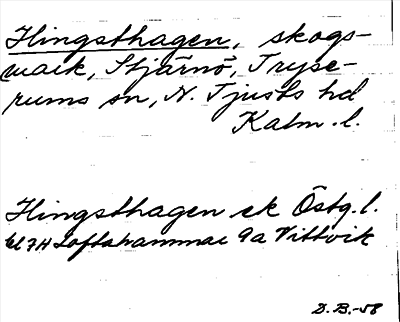 Hingsthagen, skogs-
mark, Stjärnö, Tryse-
rums sn, N. Tjusts hd
Kalm. l.
Hingsthagen ek Östg. l.
bl 7H Loftahammar 9a Vittvik
D.B.-58